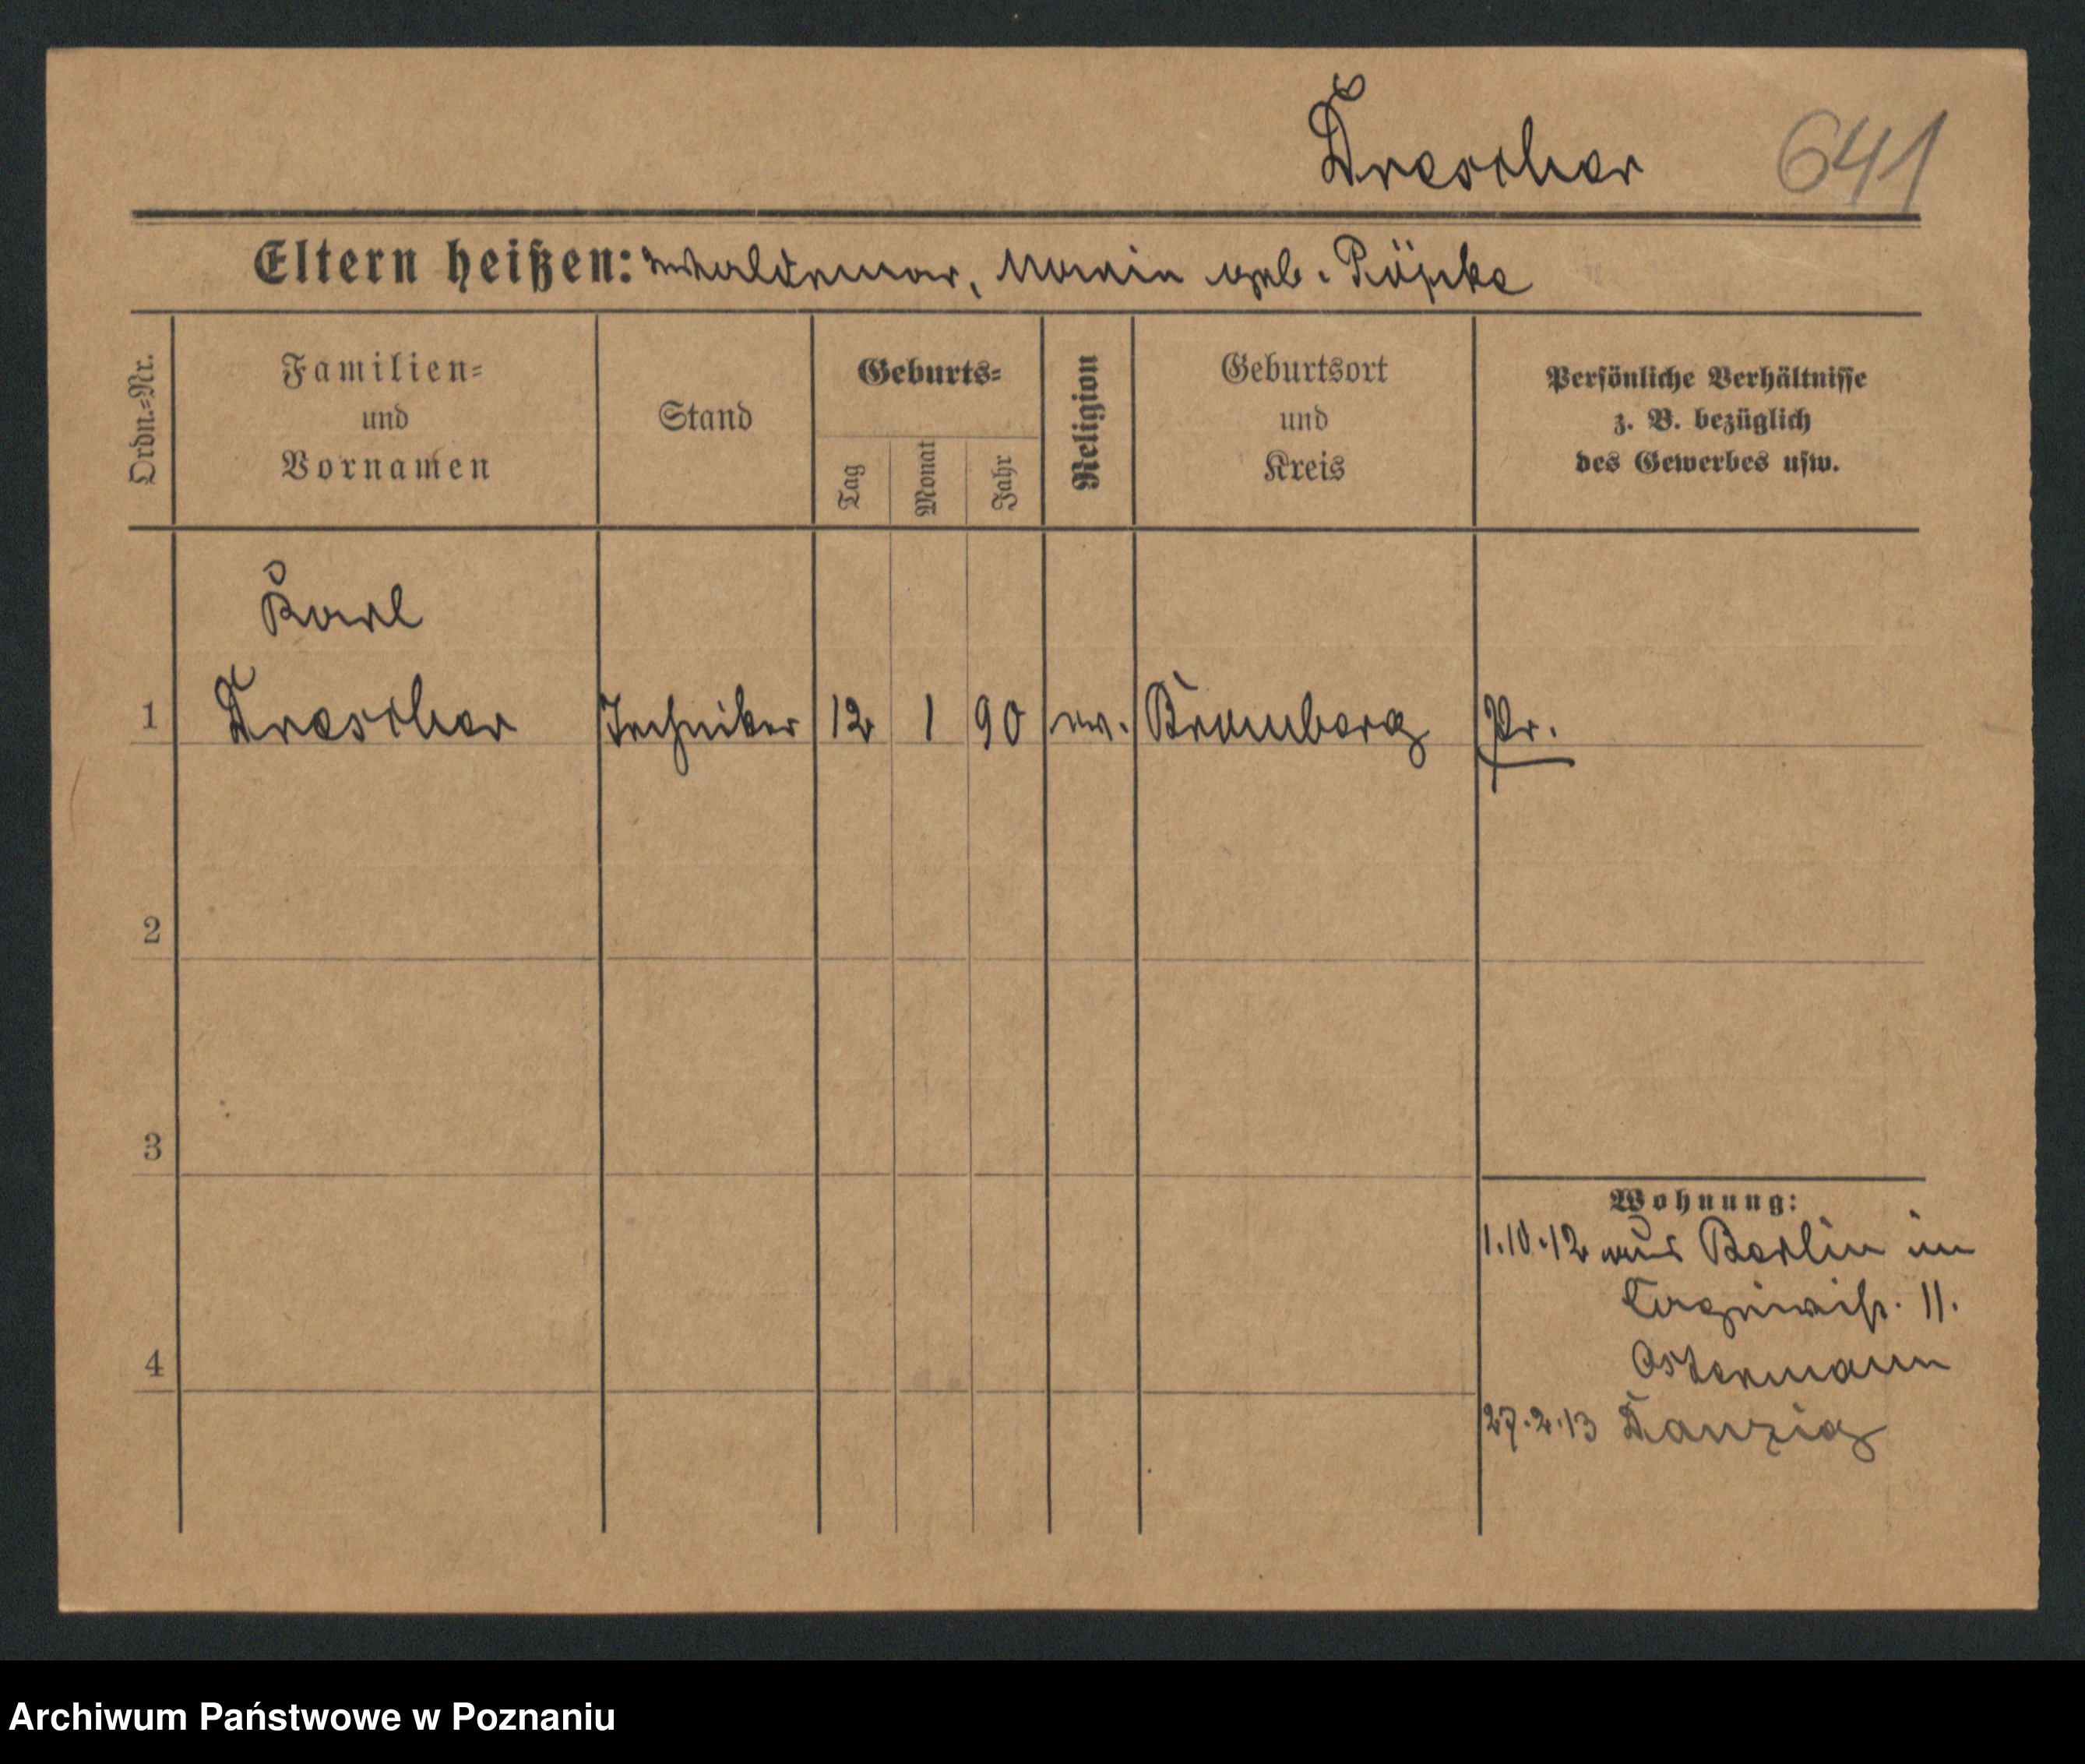 Drescher 641
Eltern heißen: Waldemar, Marie geb. Röpke
Ordn.-Nr.
Familien-
und
Vornamen
Stand
Geburts-
Tag
Monat
Jahr
Religion
Geburtsort
und
Kreis
Persönliche Verhältnisse
z. B. bezüglich
des Gewerbes usw.
Karl
1 Drescher Techniker 12 1 90 ev. Bromberg Pr.
2
3
4
Wohnung:
1.10.12 aus Berlin in
11.
Ostermann
27.2.13 Danzig
Archiwum Państwowe w Poznaniu